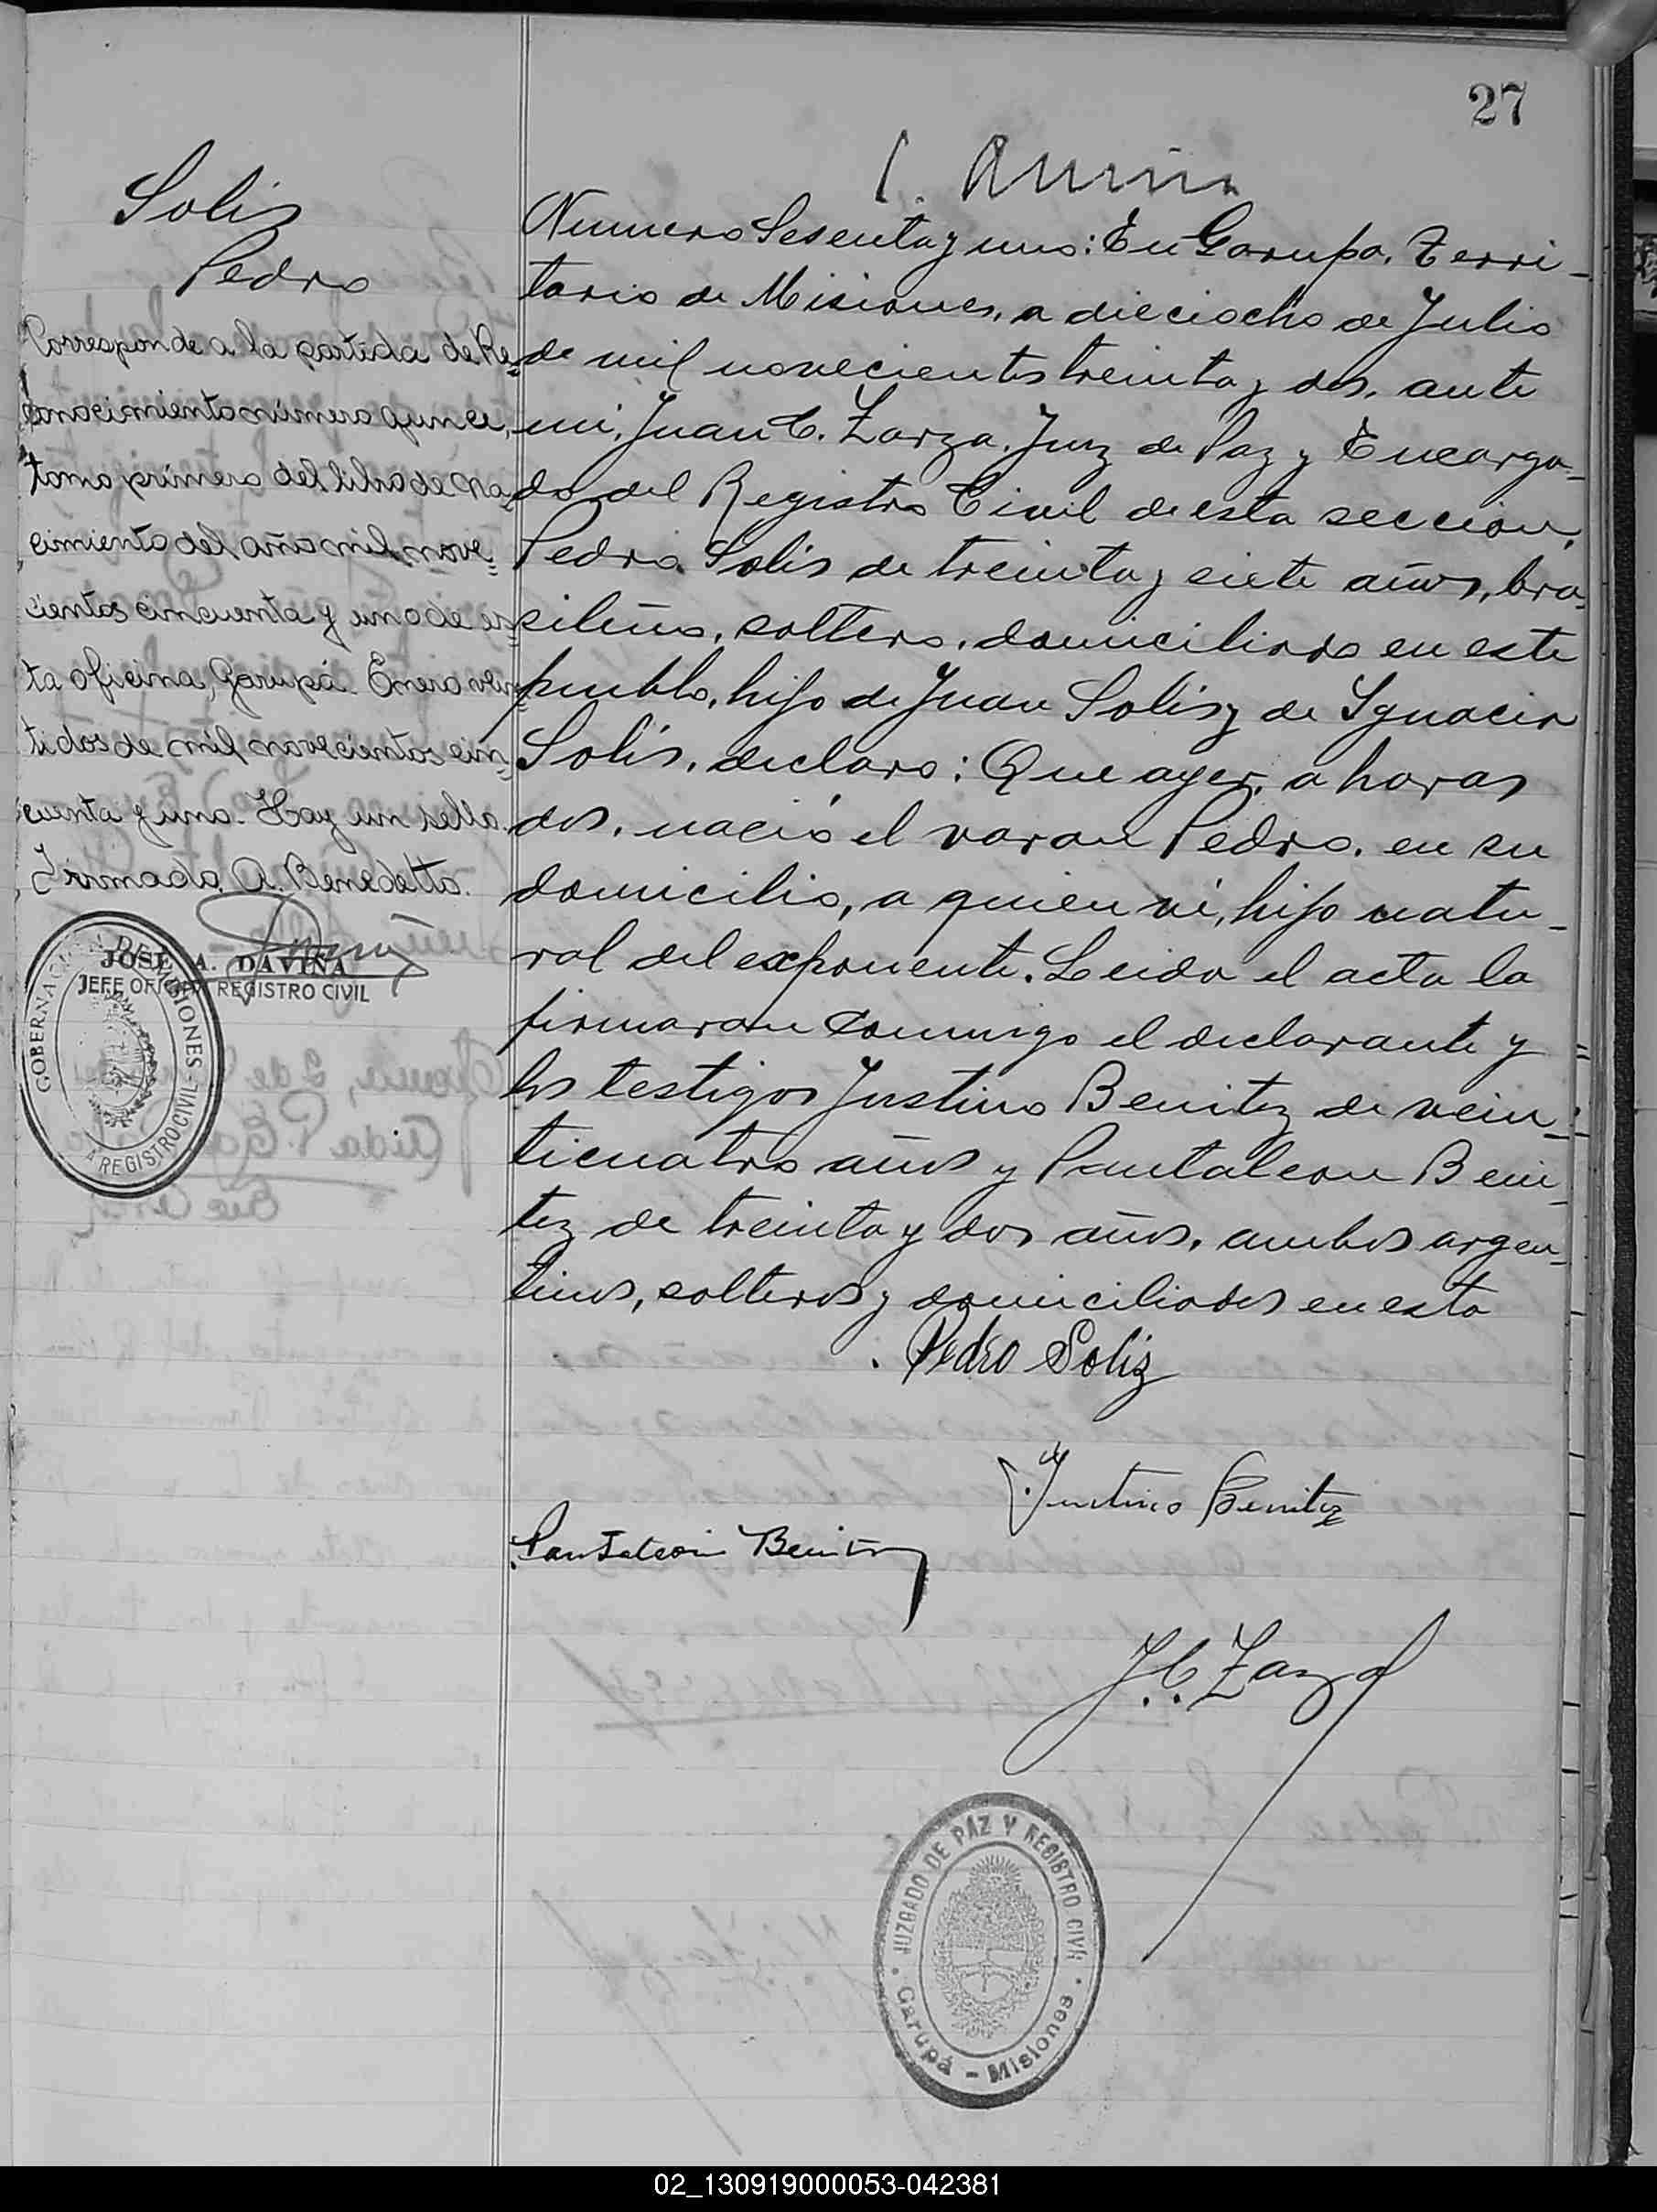 27
Solis
Pedro
Corresponde a la partida de Re=
conocimiento número quince,
tomo primero del libro de na=
cimiento del año mil nove=
cientos cincuenta y uno de es=
ta oficina, Garupá. Enero vein=
tidos de mil novecientos cin=
cuenta y uno. Hay un sello.
Firmado. A. Benedetto.
JOSE A. DAVIÑA
JEFE OFICINA REGISTRO CIVIL
GOBERNACION DE MISIONES - REGISTRO CIVIL
Numero Sesenta y uno: En Garupa, Terri-
torio de Misiones, a dieciocho de Julio
de mil novecientos treinta y dos, ante
mi, Juan C. Zarza, Juez de Paz y Encarga-
do del Registro Civil de esta seccion,
Pedro Solis de treinta y siete años, bra-
sileño, soltero, domiciliado en este
pueblo, hijo de Juan Solis y de Ignacia
Solis, declaro: Que ayer, a horas
dos, nació el varon Pedro, en su
domicilio, a quien ví, hijo natu-
ral del exponente. Leida el acta la
firmaron conmigo el declarante y
los testigos Justino Benitez de vein-
ticuatro años y Pantaleon Beni-
tez de treinta y dos años, ambos argen-
tinos, solteros y domiciliados en esta
Pedro Soliz
Justino Benitez
Pantaleon Benitez
J. C. Zarza
JUZGADO DE PAZ Y REGISTRO CIVIL
Garupá - Misiones
02_130919000053-042381